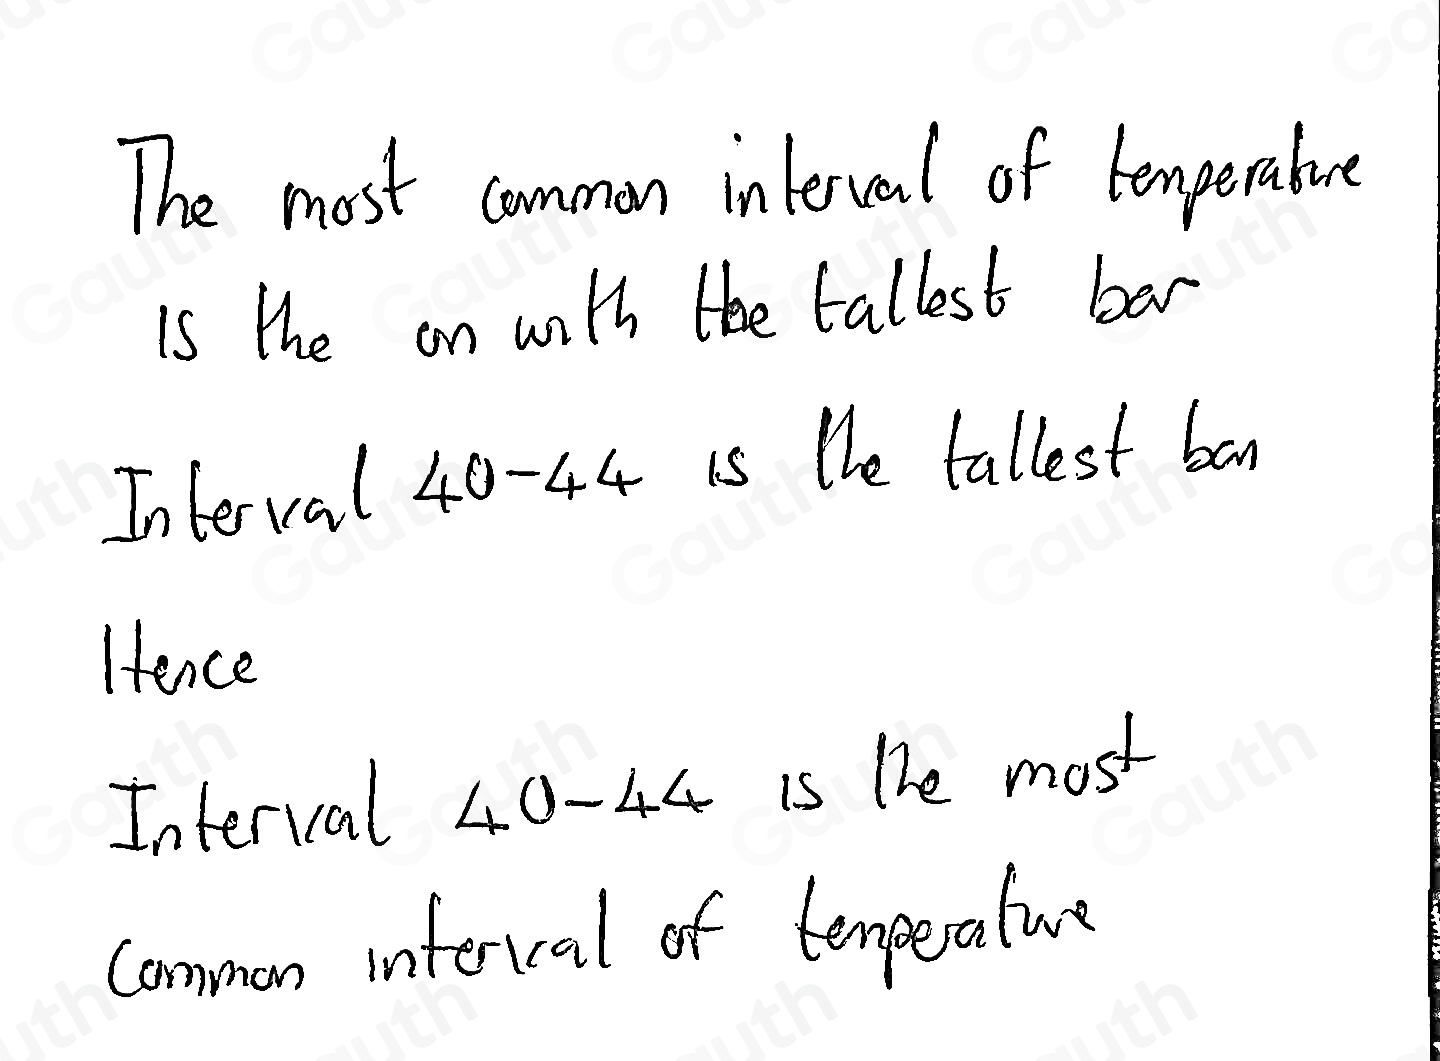 The most common interval of temperature
is the on with the tallest bar
Interval 40-44 is the tallest bar
Hence
Interval 40-44 is the most
common interval of temperature